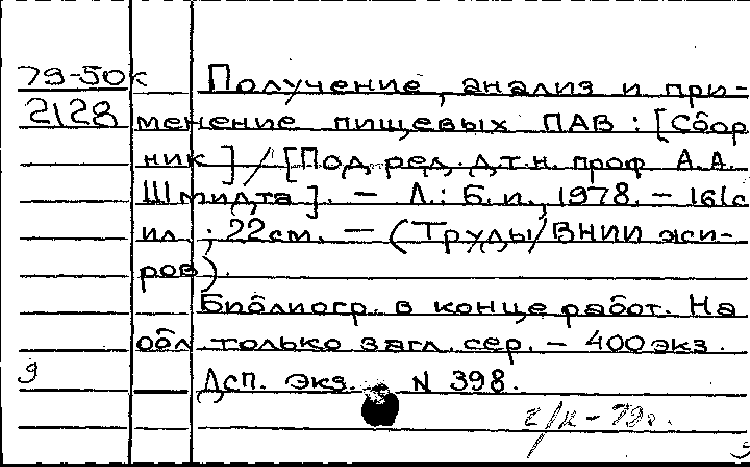 79-50к Получение, анализ и при-
2128 менение пищевых ПАВ: [Сбор
ник] / [Под ред. д.т.н. проф А.А.
Шмидта]. — Л.: Б.и., 1978. — 161с
ил.; 22см. — (Труды/ВНИИ жи-
ров).
Библиогр. в конце работ. На
обл только загл. сер. — 400 экз.
9 Дсп. экз. N 398.